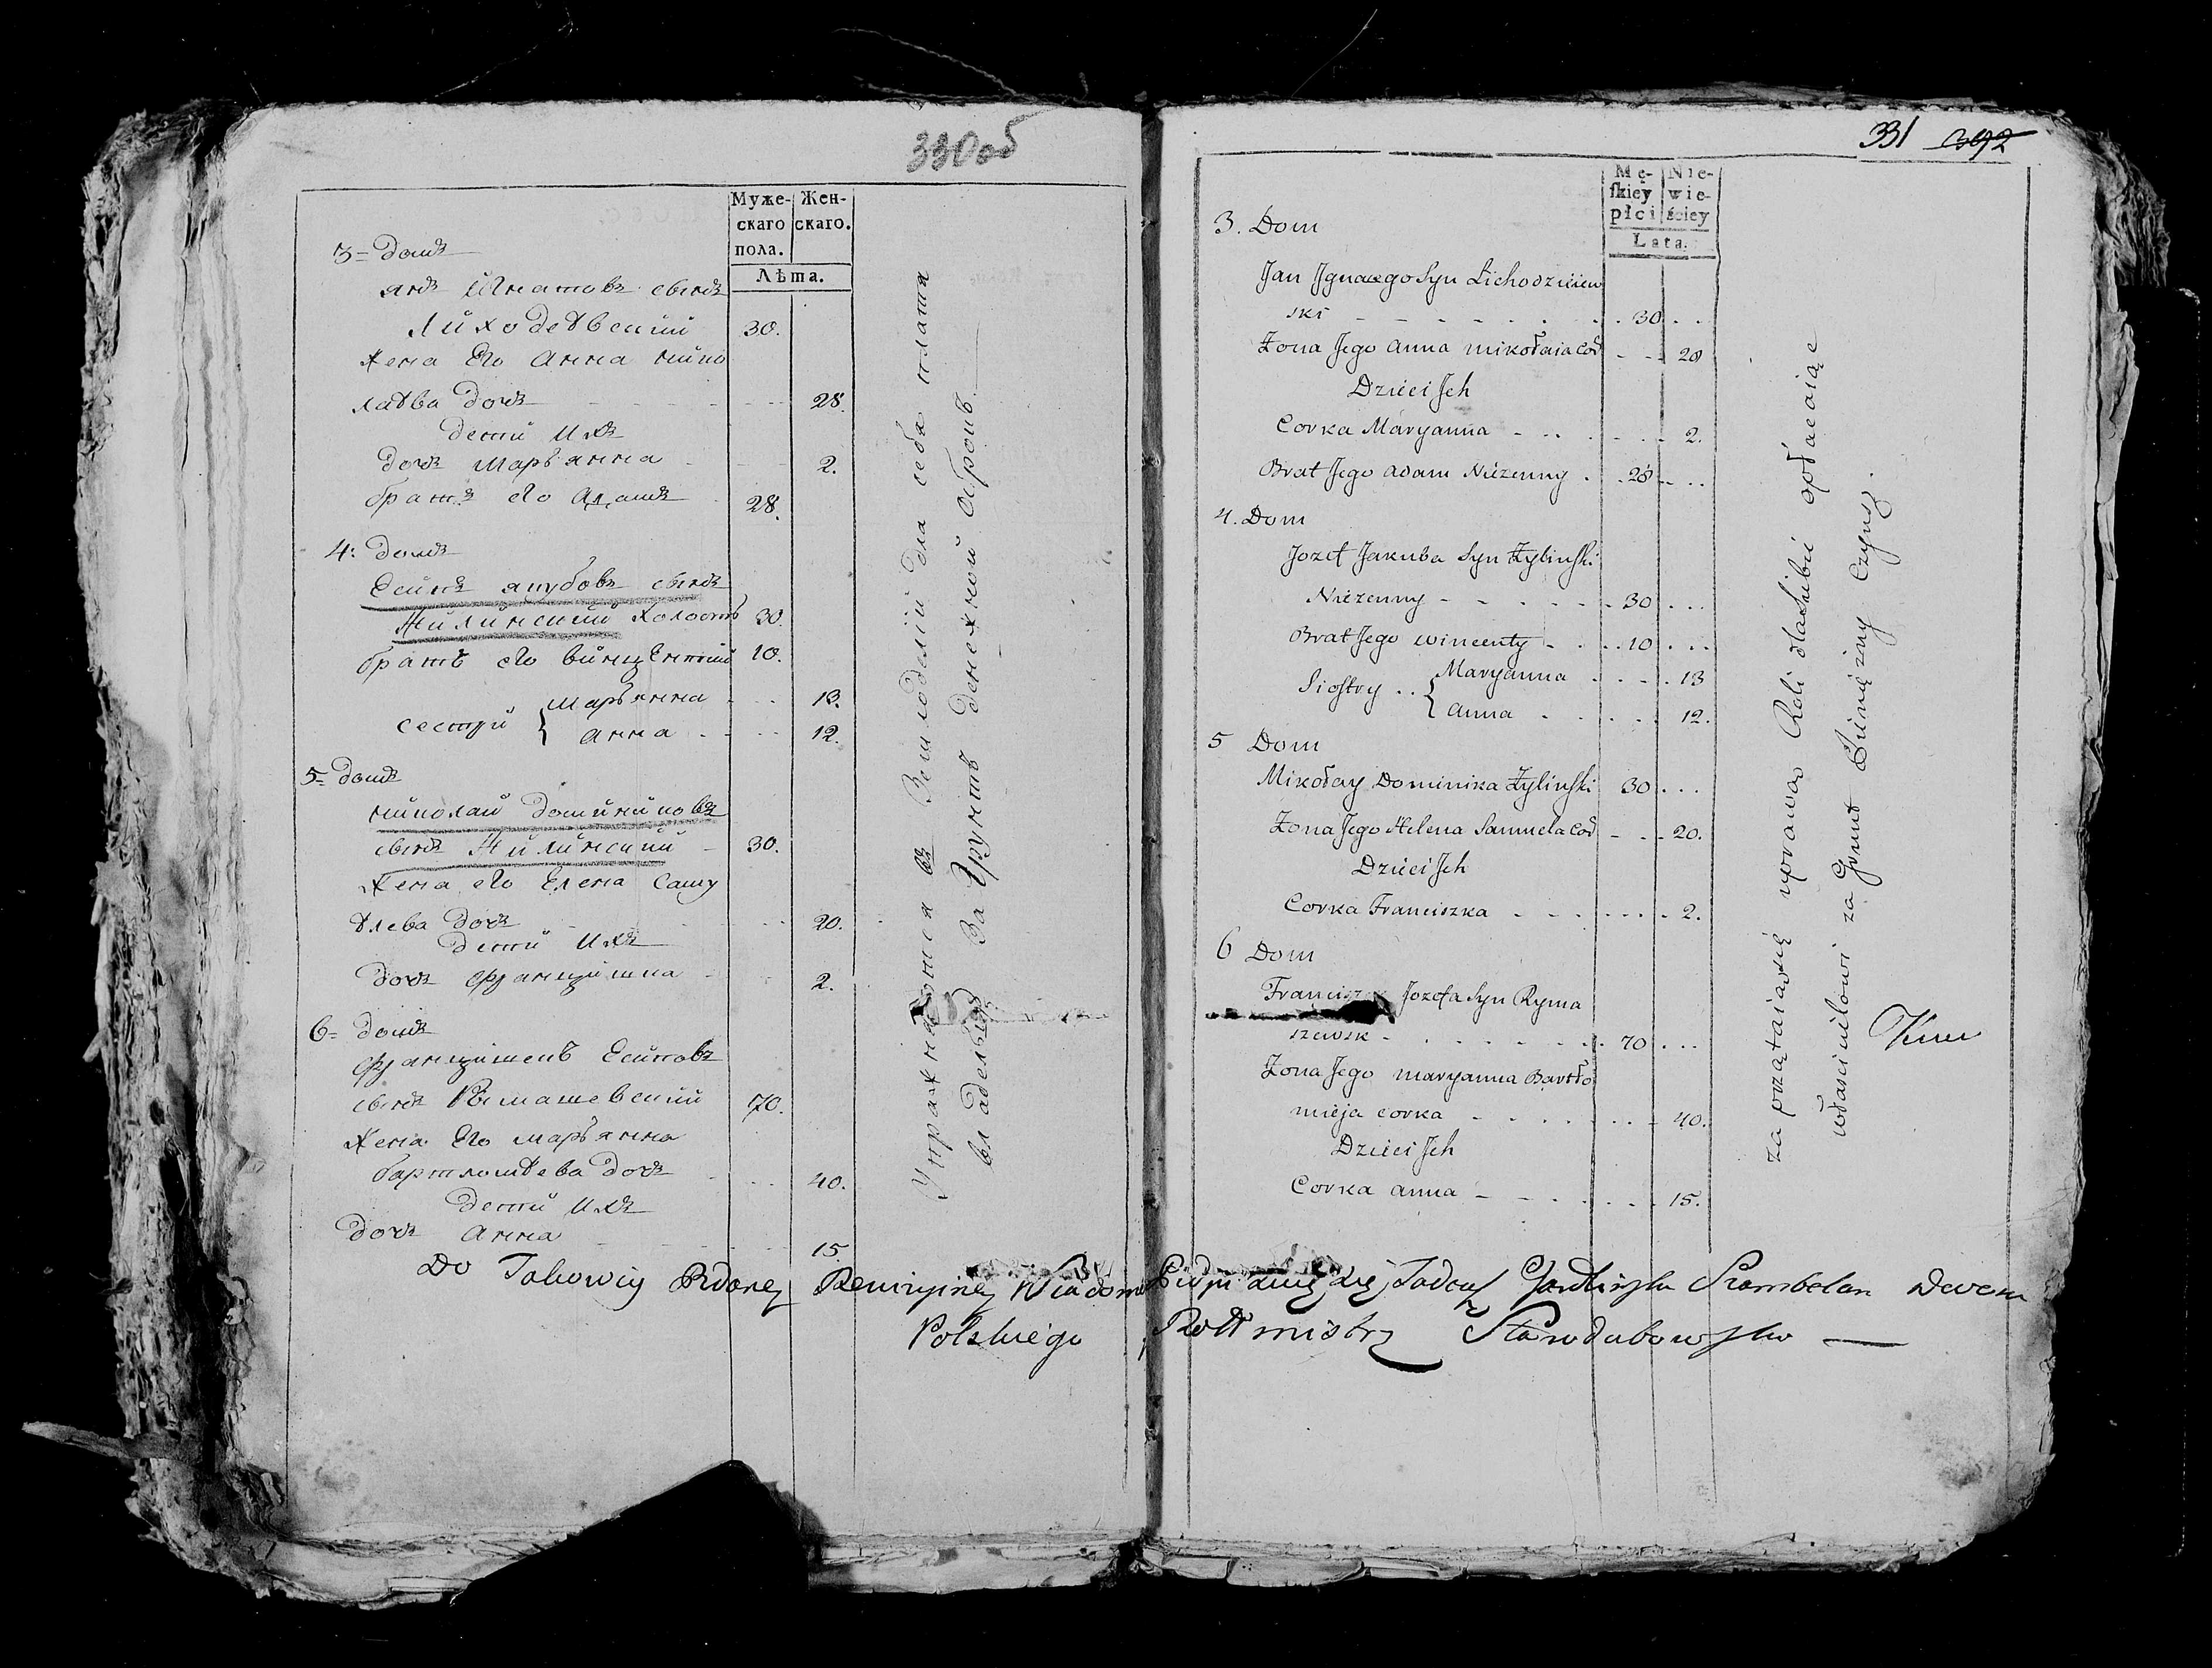 330 об
Муже-
скаго
пола.
Жен-
скаго.
Лѣта.
3= домъ
янъ Игнатовъ сынъ
Лиходѣвский 30.
жена Его Анна нико
лаѣва дочь 28.
дети Ихъ
дочь марьянна 2.
братъ его Адамъ 28.
4: домъ
Есипъ якубовъ сынъ
Жилинский холостъ 30.
братъ его винцентий 10.
сестри { марьянна 13.
анна 12.
5= домъ
николай доминиковъ
сынъ Жилинский 30.
жена его Елена саму
ѣлева дочь 20.
дети Ихъ
дочь францишка 2.
6= домъ
францишекъ Есиповъ
сынъ Рымашевский 70.
жена Его марьянна
бартломѣева дочь 40.
дети Ихъ
дочь Анна 15
Упражняются въ Земледелии для себя платя
владельцу за Грунтъ денежной оброкъ.
331 392
Mę-
skiey
płci
Nie-
wie-
ściey
Lata.
3. Dom
Jan Jgnacego Syn Lichodziiew
ski 30
Żona Jego Anna mikołaia Cod 28
Dzieci Jch
Corka Maryanna 2.
Brat Jego Adam Nieżenny 28
4. Dom
Jozef Jakuba Syn Żylinski
Nieżenny 30
Brat Jego wincenty 10
Siostry { Maryanna 13
Anna 12.
5 Dom
Mikołay Dominika Żylinski 30
Żona Jego Helena Samuela Cod 20.
Dzieci Jch
Corka Franciszka 2.
6 Dom
Jozefa Syn Ryma
szewsk 70
Żona Jego maryanna Bartło
mieja corka 40.
Dzieci Jch
Corka Anna 15.
zaprzątaiąsię uprawą Roli dlasiebie opłacaiąc
włascicielowi za Grunt Pieniężny Czynsz.
Do Takowey Rewizyiney
Szambelan
Polskiego Rottmistrz Starodubowsky